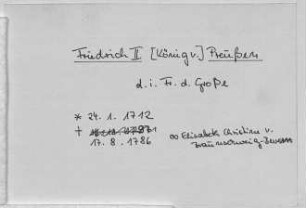 Friedrich II [König v.] Preußen
d. i. Fr. d. Große
* 24. 1. 1712
†
17. 8. 1786
∞ Elisabeth Christine v.
Braunschweig-Bevern